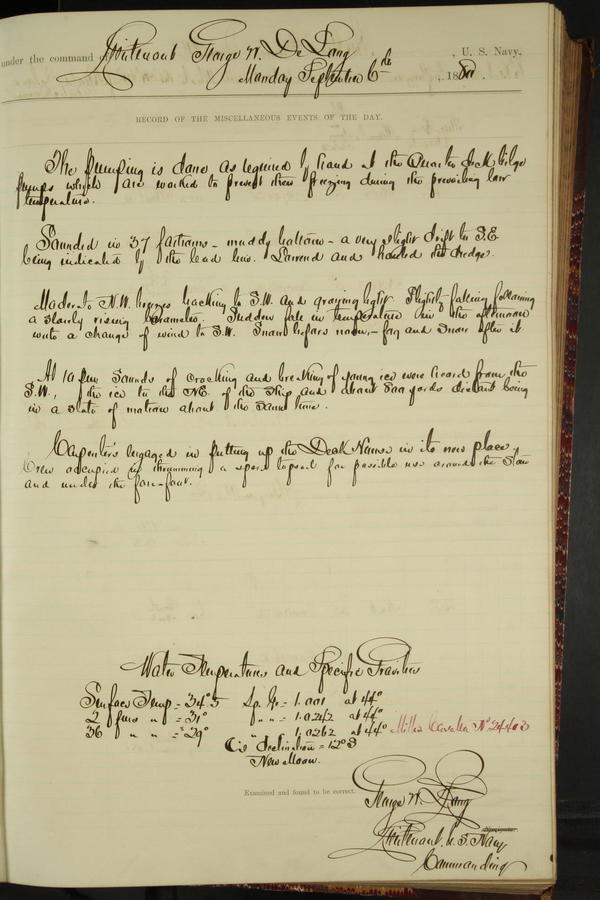 under the command of Lieutenant George W. De Long , U. S. Navy,
Monday September 6th , 1880.
RECORD OF THE MISCELLANEOUS EVENTS OF THE DAY.
The pumping is done as required by hand at the Quarter deck bilge
pumps which are worked to prevent their freezing during the prevailing low
temperature.
Sounded in 37 fathoms - muddy bottom - a very slight drift to S.E.
being indicated by the lead line. Lowered and hauled the dredge.
Moderate N.W. breezes backing to S.W. and growing light. Slightly falling following
a slowly rising barometer. Sudden fall in temperature in the afternoon
with a change of wind to S.W. Snow before noon, - fog and snow after it.
At 10 pm sounds of cracking and breaking of young ice were heard from the
S.W., the ice to the NE. of the ship and about 500 yards distant being
in a state of motion about the same time.
Carpenters engaged in putting up the Deck House in its new place,
Crew occupied in thrumming a spare topsail for possible use around the stem
and under the fore-foot.
Water Temperatures and Specific Gravities
Surface Temp = 34°.5 Sp. Gr = 1.001 at 44°
2 fms " = 31° " " = 1.0242 at 44°
36 " " = 29° " 1.0262 at 44° Miller Casella No 24403
C's declination = 12° S
New Moon.
Examined and found to be correct.
George W. De Long
Lieutenant U. S. Navy
Commanding